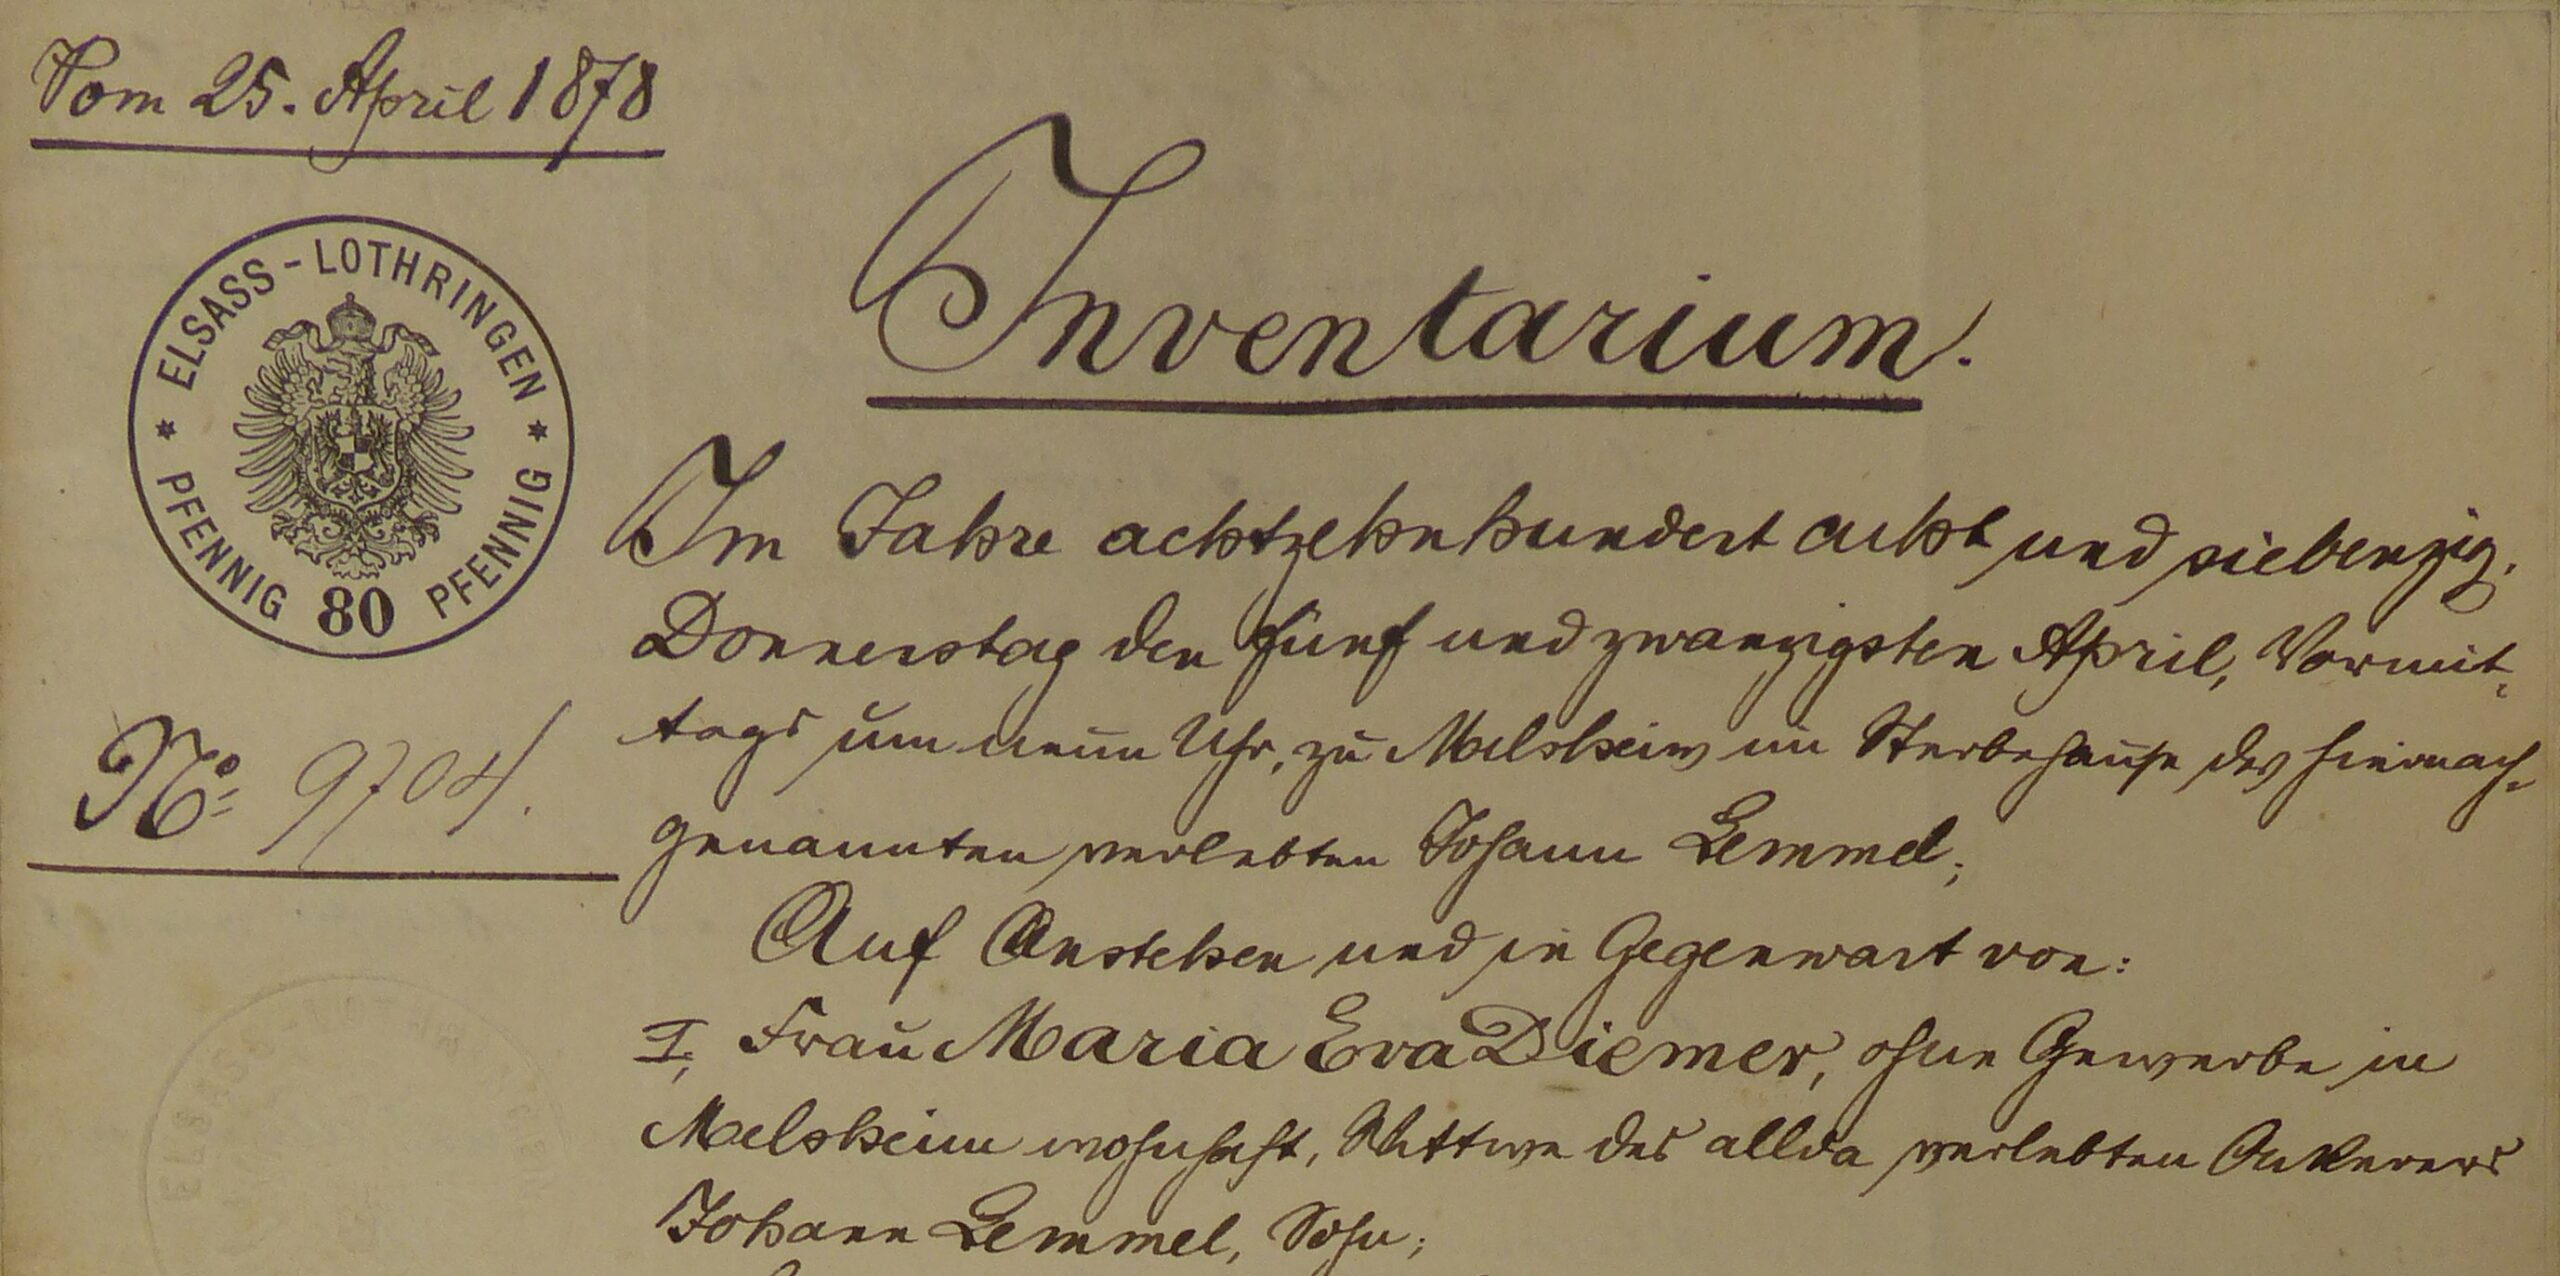 Vom 25. April 1878
ELSASS-LOTHRINGEN
PFENNIG 80 PFENNIG
Inventarium.
Im Jahre achtzehnhundert acht und siebenzig,
Donnerstag den fünf und zwanzigsten April, Vormit-
tags um neun Uhr, zu Melsheim im Sterbehause des hiernach-
No. 9704.
genannten verlebten Johann Lemmel;
Auf Anstehen und in Gegenwart von:
I, Frau Maria Eva Diemer, ohne Gewerbe in
Melsheim wohnhaft, Wittwe des allda verlebten Ackerers
Johann Lemmel, Sohn;